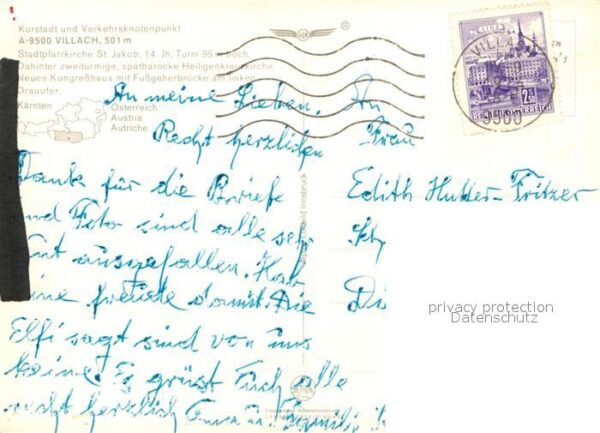 Kurstadt und Verkehrsknotenpunkt
A-9500 VILLACH, 501 m
Stadtpfarrkirche St. Jakob, 14. Jh, Turm 95 m hoch.
Dahinter zweitürmige, spätbarocke Heiligenkreuzkirche
Neues Kongreßhaus mit Fußgeherbrücke am linken
Drauufer.
Kärnten
Österreich
Austria
Autriche
An meine Lieben.
Recht herzlichen
Danke für die Briefe
und Foto sind alle sehr
gut ausgefallen. Hab
eine freude damit. Die
Elfi sagt sind von uns
keine. Es grüst Euch alle
recht herzlich
An
Frau
Edith Hutter-Fritzer
REPUBLIK ÖSTERREICH
9500
privacy protection
Datenschutz